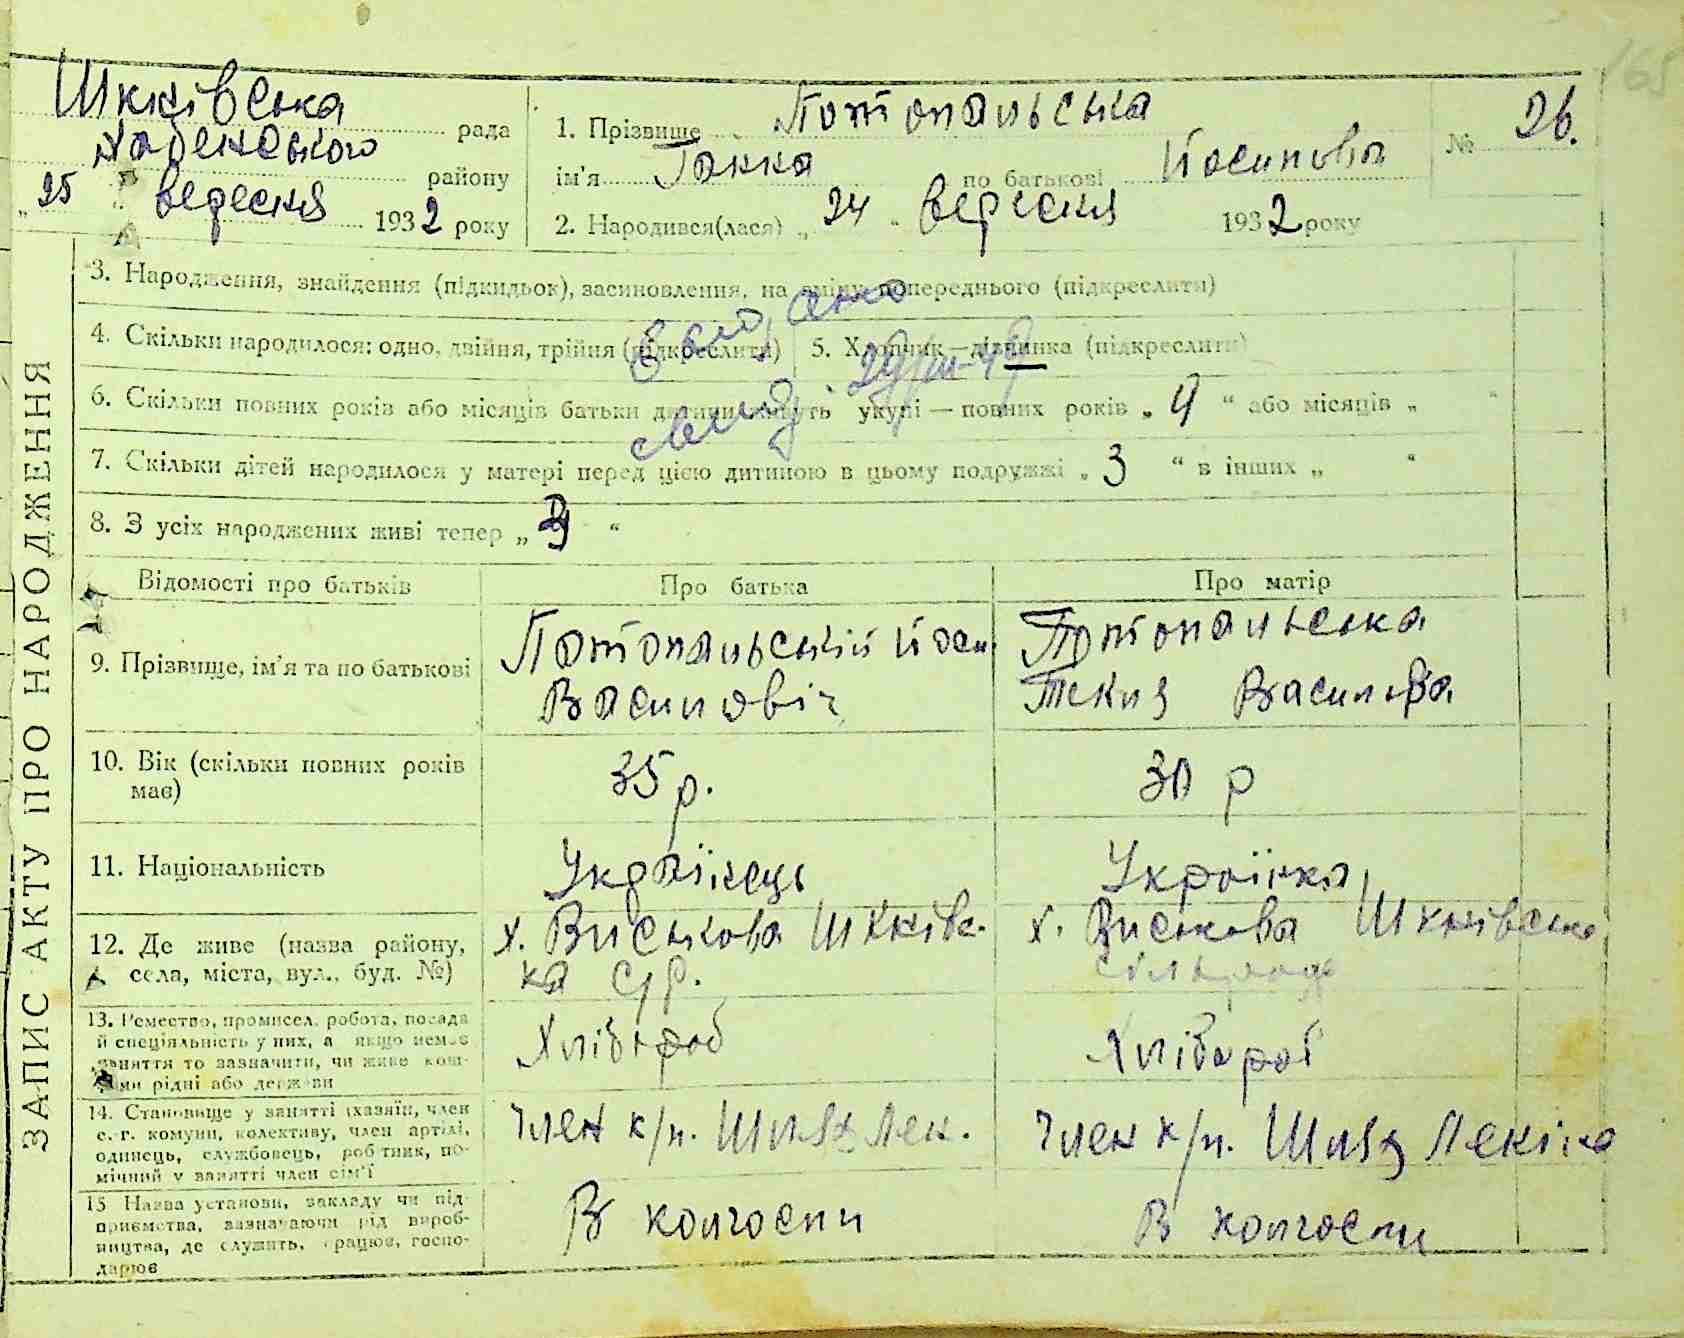 165
Шкнівська рада
Хабенського району
„25 вересня 1932 року
1. Прізвище Потопальська
ім'я Ганна по батькові Йосипова
№ 26.
2. Народився(лася) „24 " вересня 1932 року
ЗАПИС АКТУ ПРО НАРОДЖЕННЯ
3. Народження, знайдення (підкидьок), засиновлення, на зміну попереднього (підкреслити)
4. Скільки народилося: одно, двійня, трійня (підкреслити) 5. Хлопчик—дівчинка (підкреслити)
6. Скільки повних років або місяців батьки дитини живуть укупі — повних років „ 4 “ або місяців „ “
7. Скільки дітей народилося у матері перед цією дитиною в цьому подружжі „ 3 “ в інших „ “
8. З усіх народжених живі тепер „ “
Відомості про батьків Про батька Про матір
9. Прізвище, ім'я та по батькові
Потопальський Йоси.
Васильовіч
Потопальська
Текля Васильова
10. Вік (скільки повних років
має)
35 р.
30 р
11. Національність
Українець
Українка
12. Де живе (назва району,
села, міста, вул., буд. №)
х. Виськова Шкнівс.
ка с/р.
х. Виськова Шкнівська
сільрада
13. Ремество, промисел, робота, посада
й спеціяльність у них, а якщо немає
заняття то зазначити, чи живе кош-
тами рідні або держави
Хлібороб
Хлібороб
14. Становище у занятті (хазяїн, член
с.-г. комуни, колективу, член артілі,
одинець, службовець, робітник, по-
мічний у занятті член сім'ї
Член к/г. Шлях Лен.
Член к/г. Шлях Леніна
15 Назва установи, закладу чи під-
приємства, зазначаючи рід вироб-
ництва, де служить, працює, госпо-
дарює
В колгоспи
В колгоспи